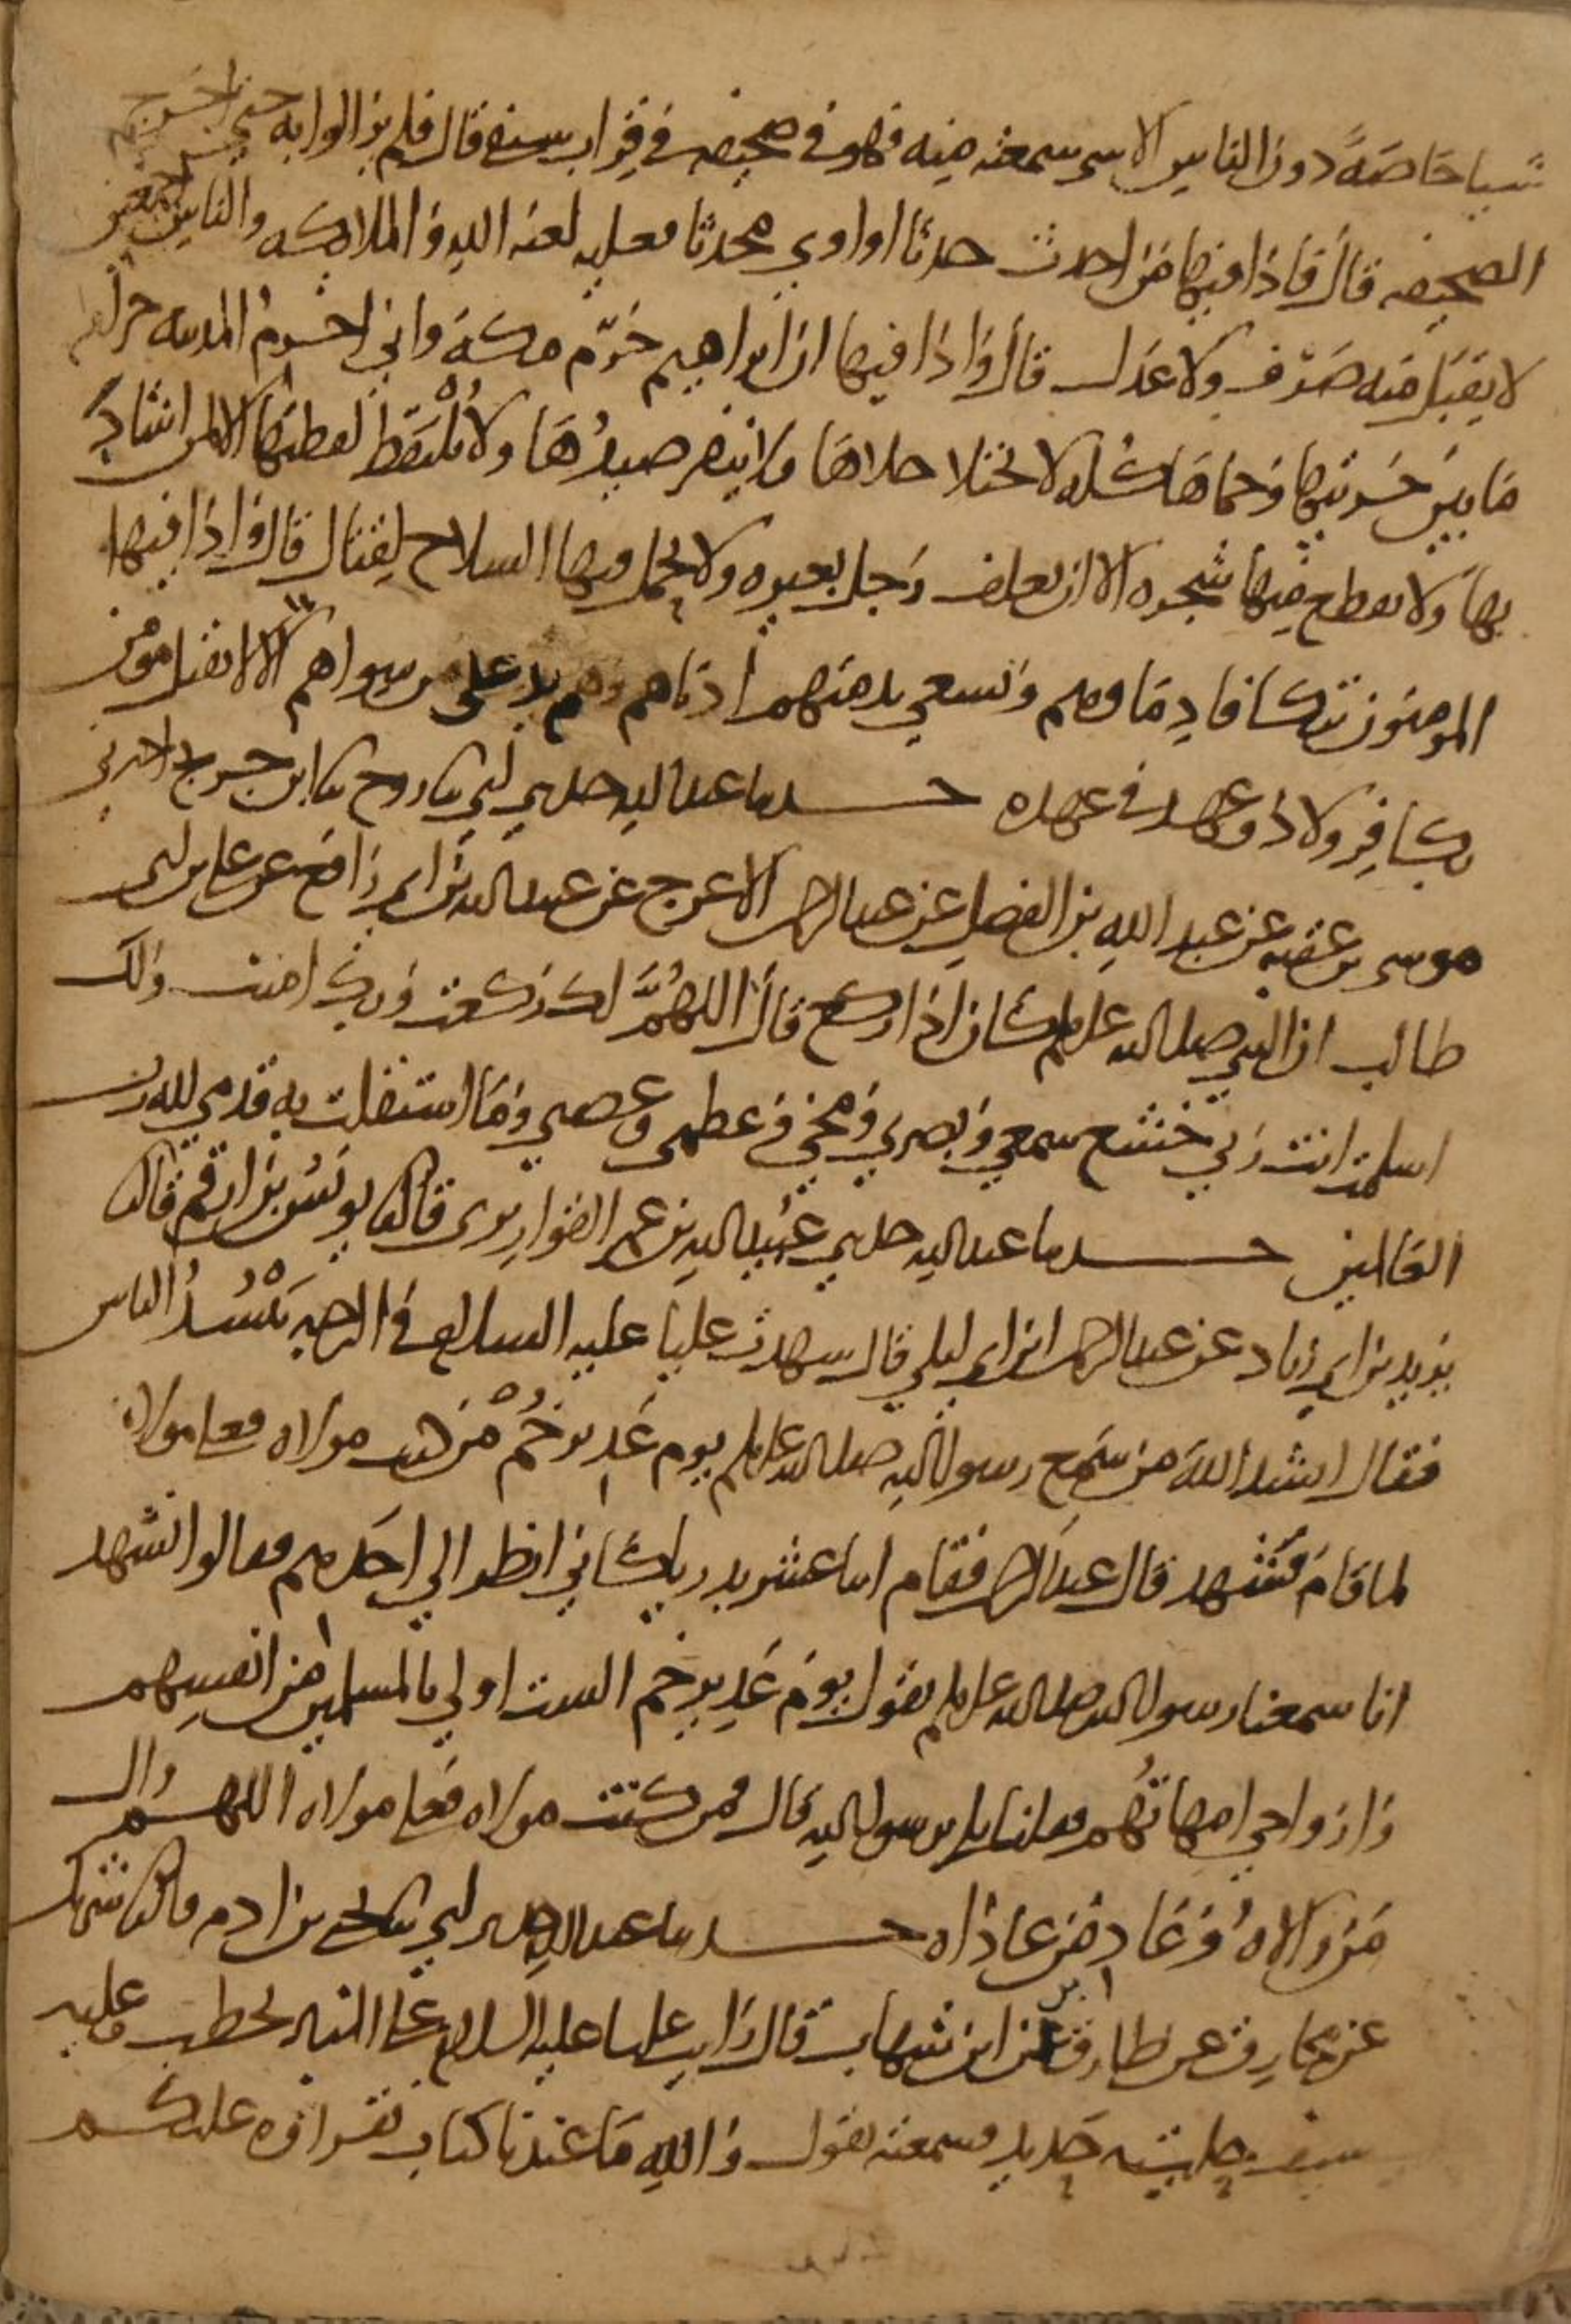 شيا خاصةً دون الناس الا شي سمعته منه فهو في صحيفه في قراب سيفي قال فلم يزالوا به حتي اخرج
الصحيفه قال فاذا فيها من احدث حدثا او اوي محدثا فعليه لعنه الله والملايكه والناس اجمعين
لا يقبل منه صرف ولا عدل قال واذا فيها ان ابراهيم حرّم مكه واني احرم المدينه حرام
ما بين حرتيها وحماها كله لا يختلا خلاها ولا ينفر صيدها ولا تُلتقط لقطتها الا لمن اشاد
بها ولا يقطع منها شجره الا ان يعلف رجل بعيره ولا يحمل فيها السلاح لقتال قال واذا فيها
المومنون تتكافا دماوهم ويسعي بذمتهم ادناهم وهم يد على من سواهم الا لا يقتل مومن
بكافر ولا ذو عهد في عهده حدثنا عبد الله حدثني ابي ثنا روح ثنا ابن جريج اخبرني
موسى بن عقبه عن عبد الله بن الفضل عن عبد الرحمن الاعرج عن عبيد الله بن ابي رافع عن علي بن ابي
طالب ان النبي صلى الله عليه وسلم كان اذا ركع قال اللهُمَّ لك ركعت وبك امنت ولك
اسلمت انت ربي خشع سمعي وبصري ومخي وعظمي وعصبي وما استقلت به قدمي لله رب
العالمين حدثنا عبد الله حدثني عُبيد الله بن عمر القواريري قال ثنا يونس بن ارقم قال ثنا
يزيد بن ابي زياد عن عبد الرحمن ابن ابي ليلي قال شهدت عليا عليه السلام في الرحبه يَنْشُدُ الناس
فقال انشد الله من سمع رسول الله صلى الله عليه وسلم يوم غدير خُمّ من كنت مولاه فعلي مولاه
لما قام فشهد قال عبد الرحمن فقام اثنا عشر بدريا كاني انظر الي احدهم فقالوا نشهد
انا سمعنا رسول الله صلى الله عليه وسلم يقول يوم غدير خم الست اولي بالمسلمين من انفسهم
وازواجي امهاتُهم فقلنا بلى يرسول الله قال فمن كنت مولاه فعلي مولاه اللهم وال
من والاهُ وعاد من عاداه حدثنا عبد الله حدثني ابي ثنا يحيى بن ادم قال ثنا شريك
عن مخارق عن طارق ابن شهاب قال رايت عليا عليه السلام علي المنبر يخطب وعليه
سيف حليته حديد فسمعته يقول والله ما عندنا كتاب نقراوه عليكم